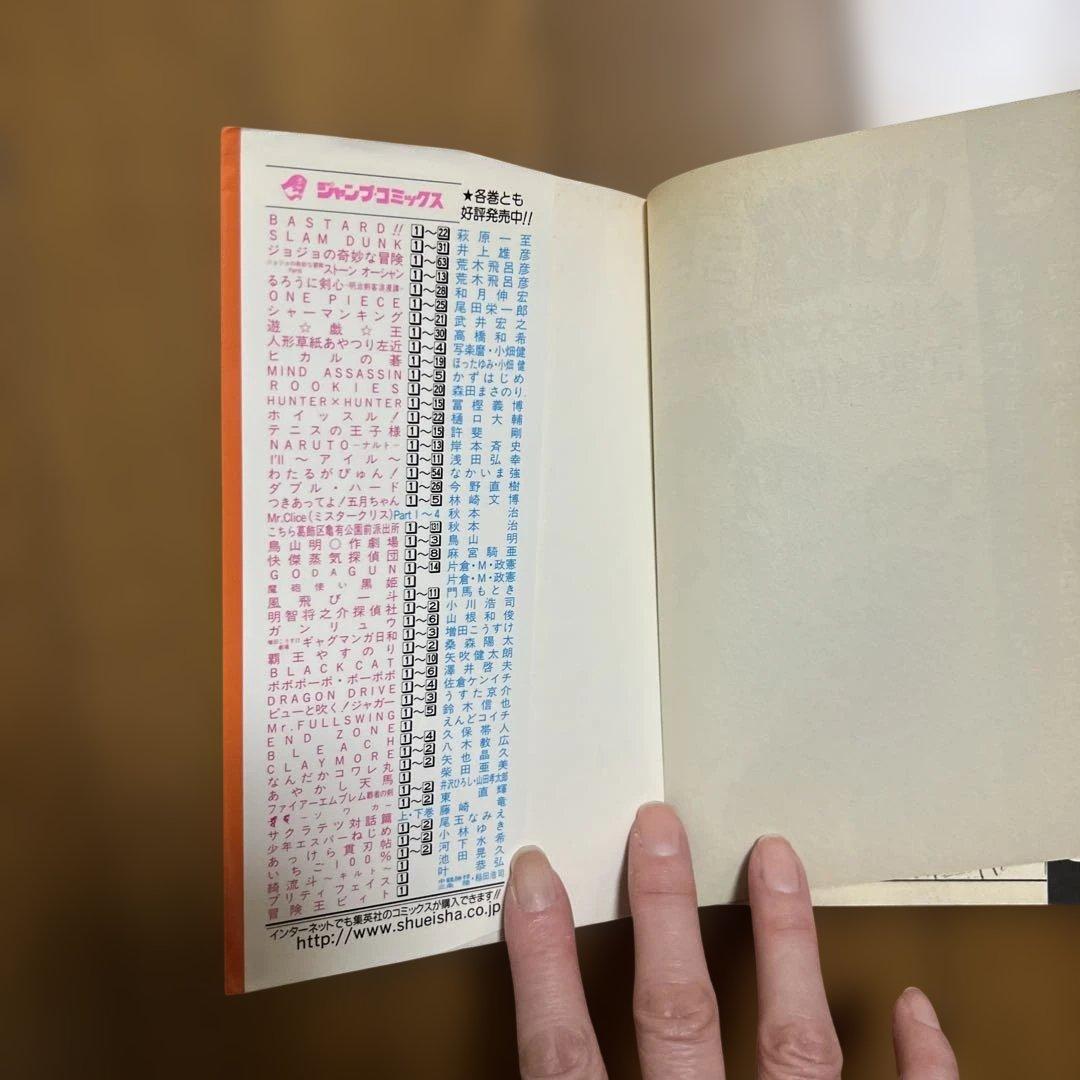 ジャンプ・コミックス ★各巻とも好評発売中!!
BASTARD!! 1〜22 萩原一至
SLAM DUNK 1〜31 井上雄彦
ジョジョの奇妙な冒険 1〜63 荒木飛呂彦
ジョジョの奇妙な冒険 Part6 ストーン オーシャン 1〜13 荒木飛呂彦
るろうに剣心-明治剣客浪漫譚- 1〜28 和月伸宏
ONE PIECE 1〜25 尾田栄一郎
シャーマンキング 1〜21 武井宏之
遊☆戯☆王 1〜30 高橋和希
人形草紙あやつり左近 1〜4 写楽麿・小畑健
ヒカルの碁 1〜19 ほったゆみ・小畑健
MIND ASSASSIN 1〜5 かずはじめ
ROOKIES 1〜20 森田まさのり
HUNTER×HUNTER 1〜15 冨樫義博
ホイッスル! 1〜22 樋口大輔
テニスの王子様 1〜15 許斐剛
NARUTO-ナルト- 1〜13 岸本斉史
I'll〜アイル〜 1〜11 浅田弘幸
わたるがぴゅん! 1〜54 なかいま強
ダブル・ハード 1〜26 今野直樹
つきあってよ!五月ちゃん 1〜5 林崎文博
Mr.Clice(ミスタークリス) Part 1〜4 秋本治
こちら葛飾区亀有公園前派出所 1〜131 秋本治
鳥山明○作劇場 1〜3 鳥山明
快傑蒸気探偵団 1〜8 麻宮騎亜
GODAGUN 片倉・M・政憲
魔砲使い黒姫 1 片倉・M・政憲
風飛び一斗 1〜11 門馬もとき
明智将之介探偵社 1〜2 小川浩司
ガンリュウ 1〜6 山根和俊
増田こうすけ劇場 ギャグマンガ日和 1〜3 増田こうすけ
覇王やすのり 1〜2 桑森陽太
BLACK CAT 1〜10 矢吹健太朗
ボボボーボ・ボーボボ 1〜6 澤井啓夫
DRAGON DRIVE 1〜4 佐倉ケンイチ
ピューと吹く!ジャガー 1〜3 うすた京介
Mr.FULLSWING 1〜5 鈴木信也
END ZONE 1 えんどコイチ
BLEACH 1〜4 久保帯人
CLAYMORE 1〜2 八木教広
なんだかコワレ丸 1〜2 矢也晶久
あやかし天馬 1 柴田亜美
ファイアーエムブレム覇者の剣 1〜2 井沢ひろし・山田孝太郎
ソワカー 1〜2 東直輝
サクラテツ対話篇 上・下巻 藤崎竜
少年エスパーねじめ 1〜2 尾玉なみえ
あっけら貫刃帖 1〜2 小林ゆき
いちご100% 1〜2 河下水希
綺流斗〜キルト〜 1 池田晃久
プリティフェイス 1 叶恭弘
冒険王ビィト 1 三条陸・稲田浩司
インターネットでも集英社のコミックスが購入できます!!
http://www.shueisha.co.jp